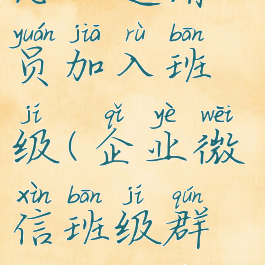 yuán jiā rù bān
员加入班
jí qǐ yè wēi
级(企业微
xìn bān jí qún
信班级群